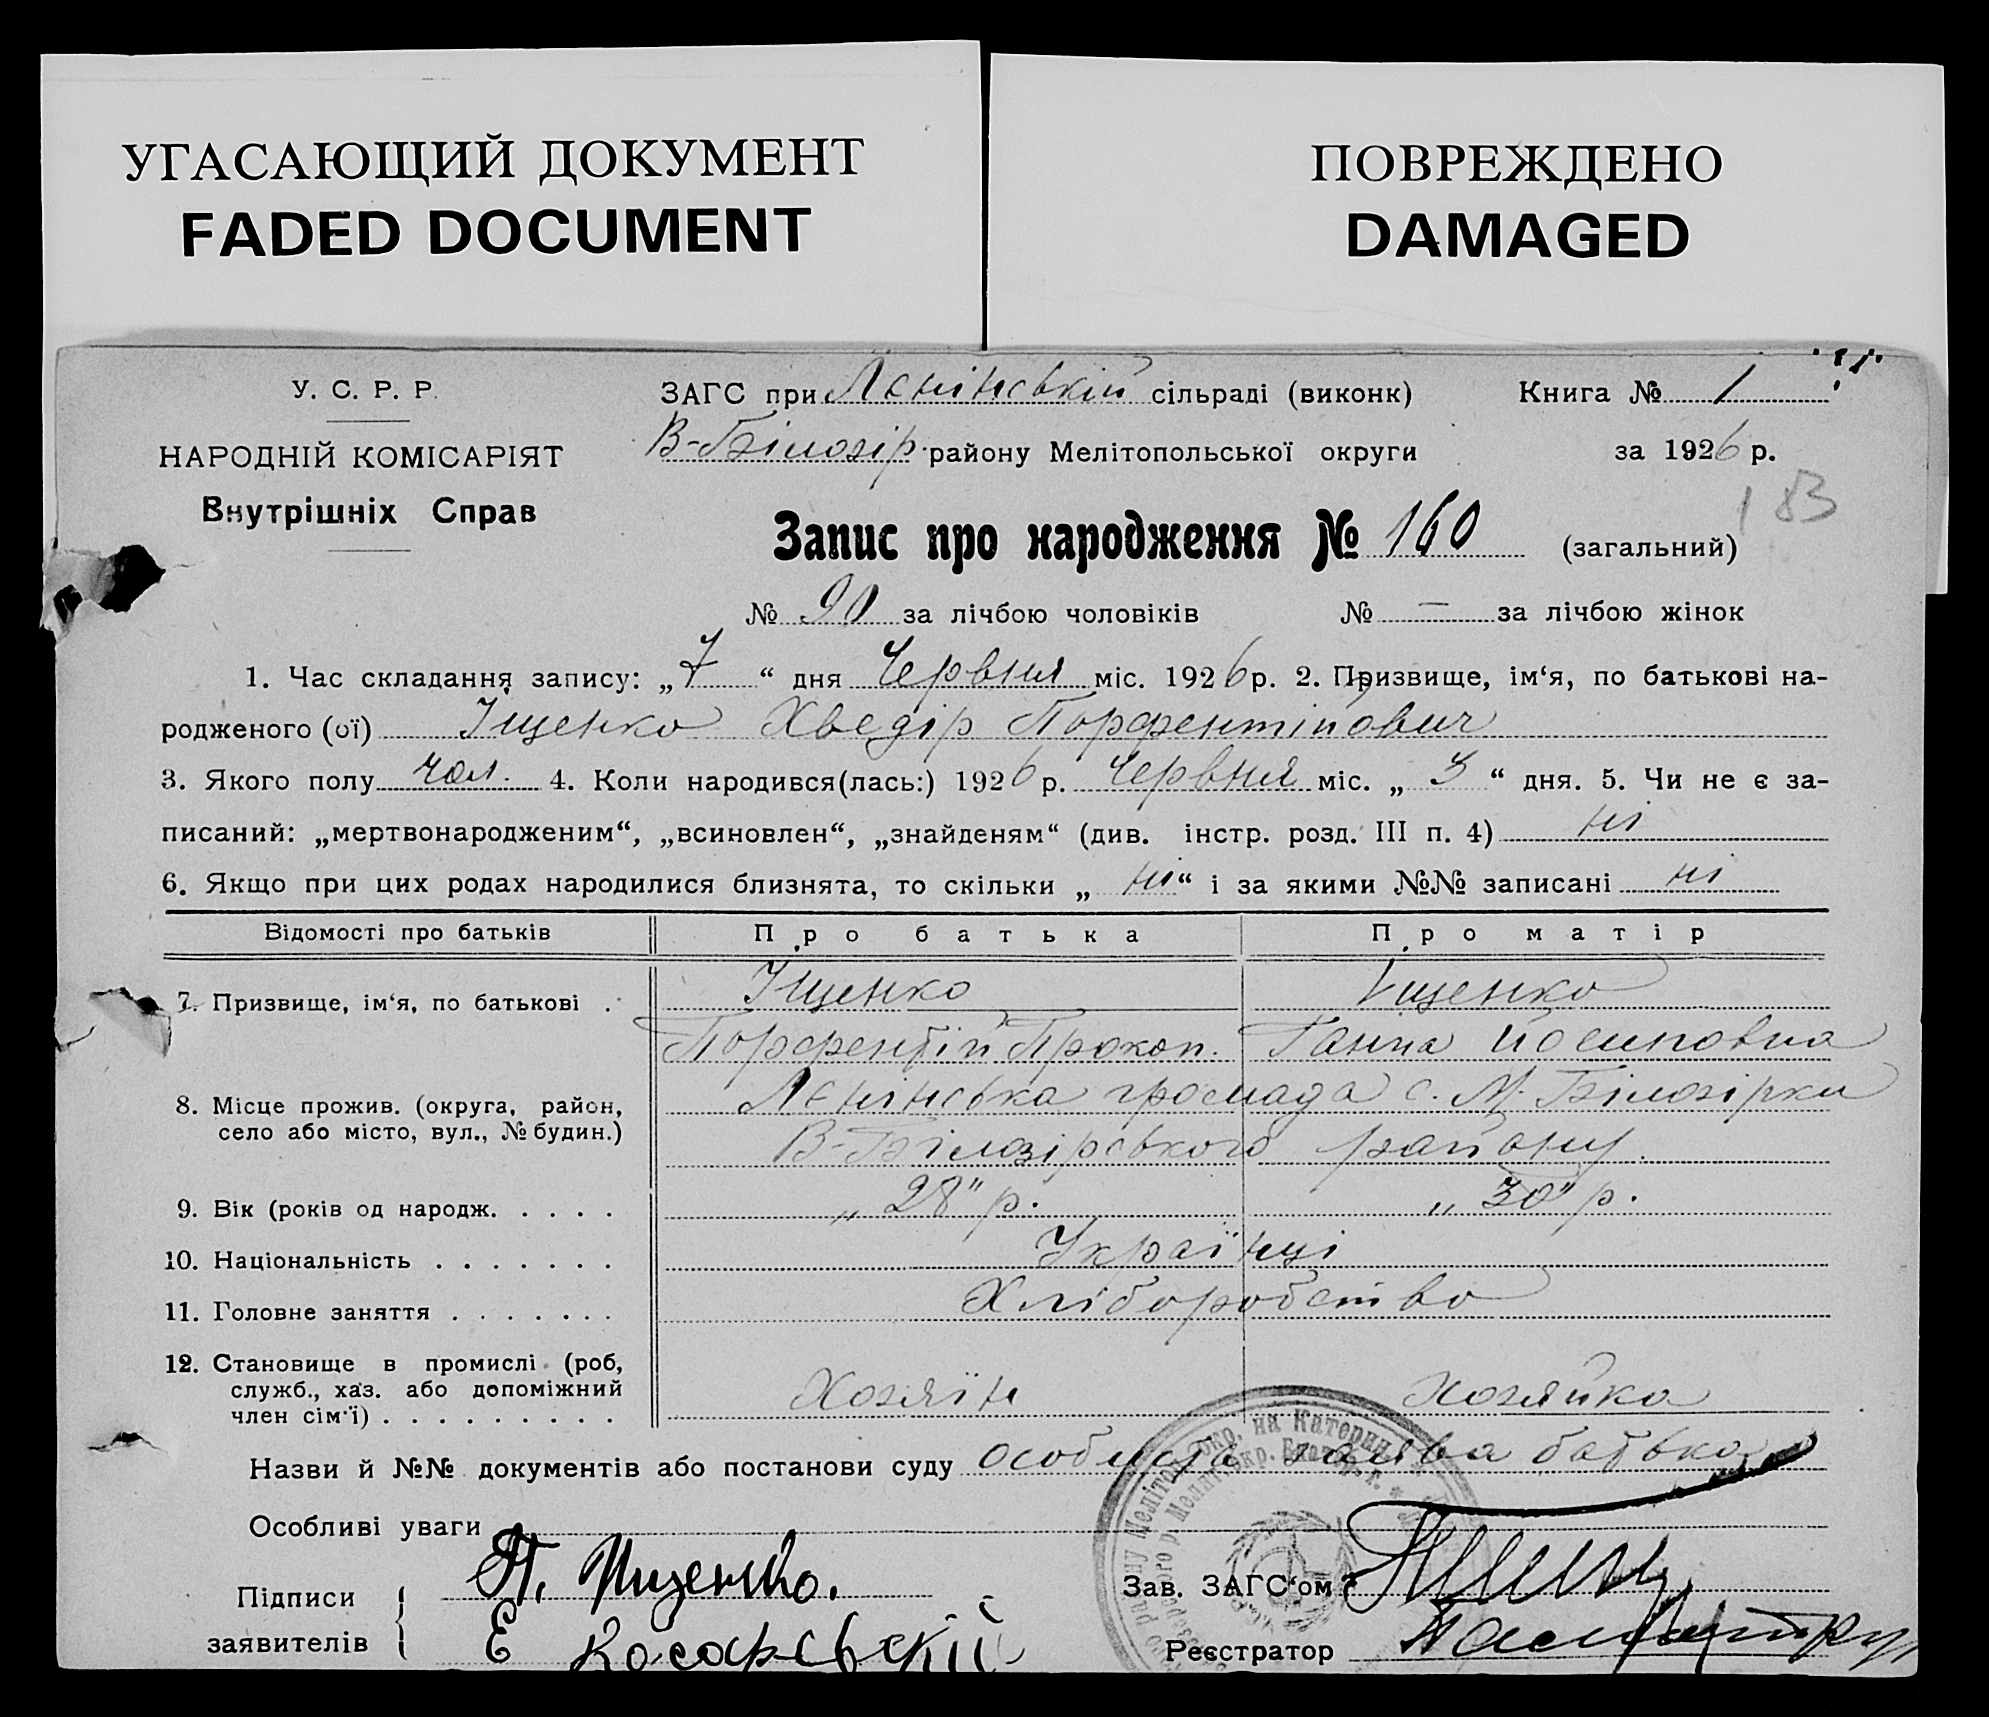 УГАСАЮЩИЙ ДОКУМЕНТ
FADED DOCUMENT
ПОВРЕЖДЕНО
DAMAGED
У. С. Р. Р.
НАРОДНІЙ КОМІСАРІЯТ
Внутрішніх Справ
ЗАГС при Лєнінській сільраді (виконк) Книга № 1
В-Білозір. району Мелітопольської округи за 1926 р.
183
Запис про народження № 160 (загальний)
№ 90 за лічбою чоловіків № — за лічбою жінок
1. Час складання запису: „7“ дня Червня міс. 1926 р. 2. Призвище, ім‘я, по батькові на-
родженого (ої) Іщенко Хведір Порфентійович
3. Якого полу чол. 4. Коли народився(лась:) 1926 р. Червня міс. „3“ дня. 5. Чи не є за-
писаний: „мертвонародженим“, „всиновлен“, „знайденям“ (див. інстр. розд. III п. 4) ні
6. Якщо при цих родах народилися близнята, то скільки „ні“ і за якими №№ записані ні
Відомості про батьків Про батька Про матір
7. Призвище, ім‘я, по батькові . Іщенко Іщенко
Порфентій Прокоп. Ганна Йосиповна
8. Місце прожив. (округа, район, Лєнінська громада с. М. Білозірки
село або місто, вул., № будин.) В-Білозірського району.
9. Вік (років од народж. . . . . „28" р. „30" р.
10. Національність . . . . . . . Українці
11. Головне заняття . . . . . . . Хліборобство
12. Становище в промислі (роб,
служб., хаз. або допоміжний Хозяїн Хозяйка
член сім‘ї) . . . . . . . . . .
Назви й №№ документів або постанови суду особиста заява батька
Особливі уваги
Підписи П. Ищенко. Зав. ЗАГС‘ом
заявителів Е Косарській Реєстратор